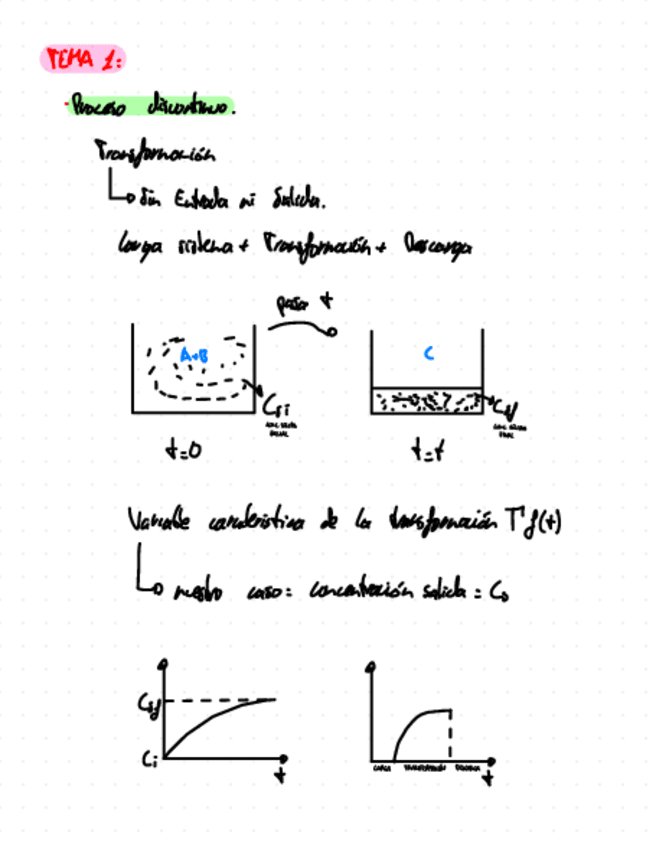 TEMA 1:
· Proceso discontinuo.
Transformación
Sin Entrada ni Salida.
Carga sistema + Transformación + Descarga
pasa t
A+B
C
Csi
Csf
t=0
t=t
Variable característica de la transformación T f(t)
nuestro caso = concentración salida = Cs
Csf
Ci
t
CARGA TRANSFORMACIÓN DESCARGA
t